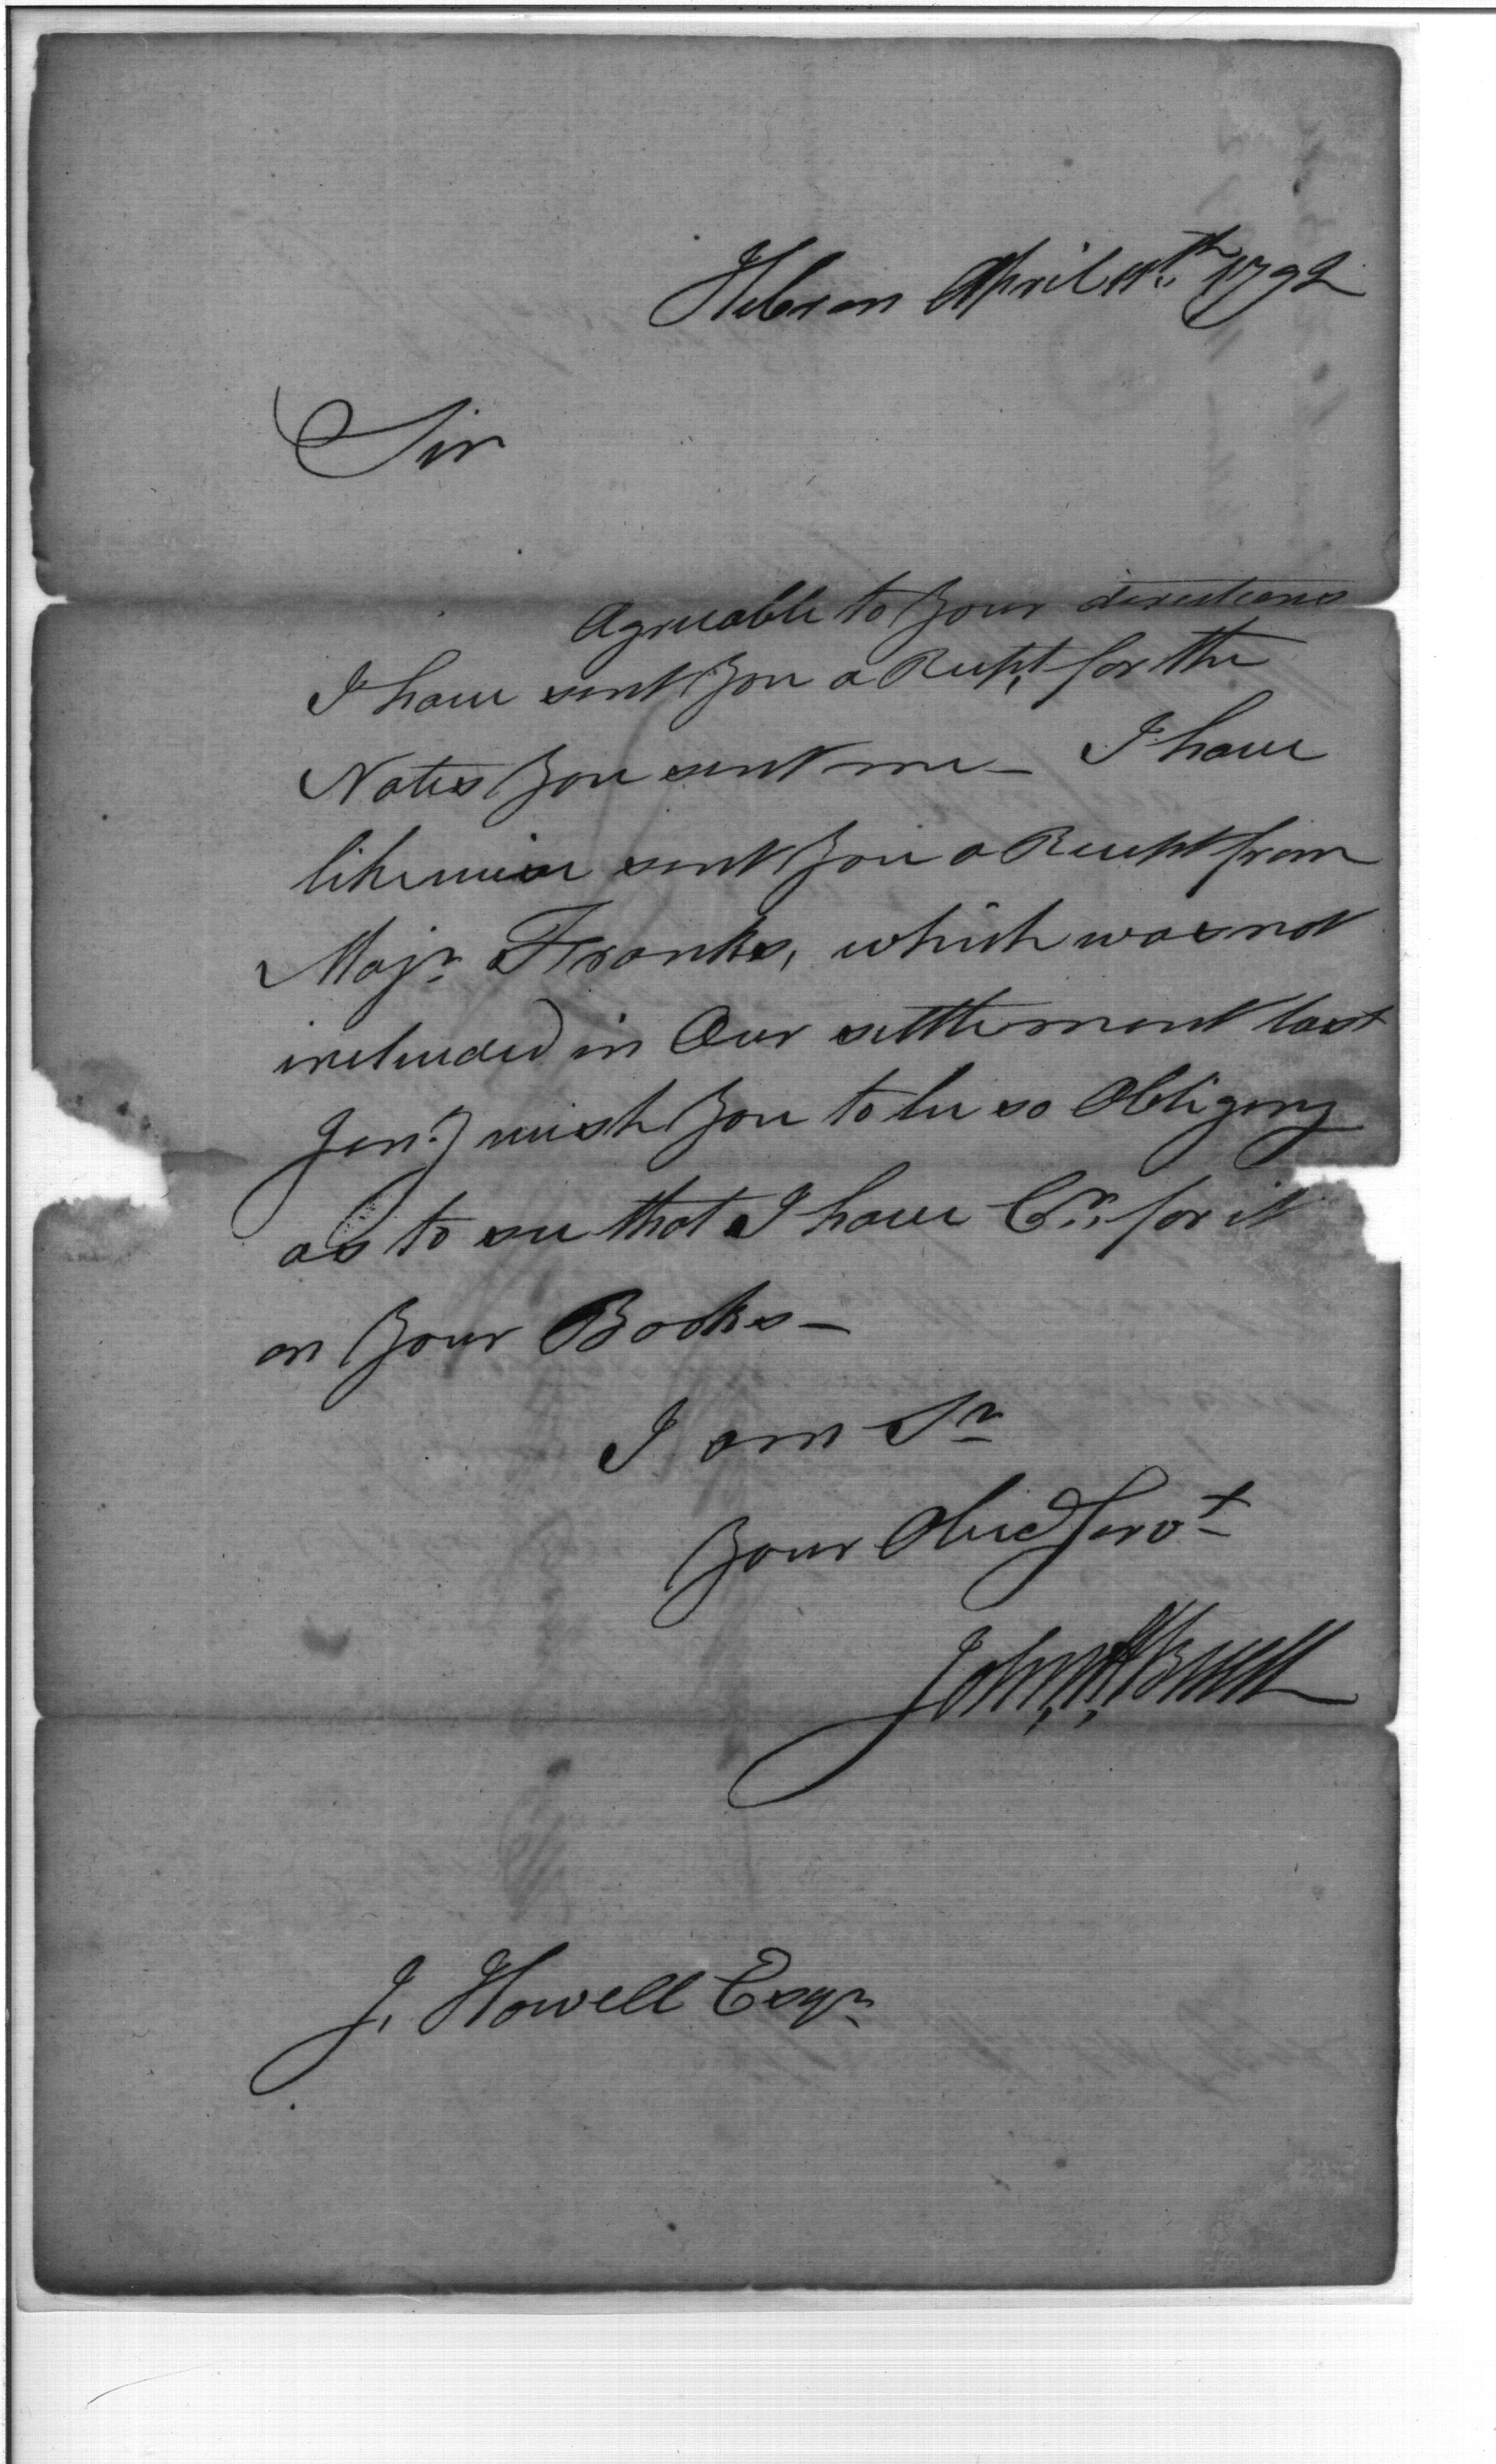 Hebron April 11th 1792
Sir
Agreeable to your directions
I have sent you a Recpt, for the
Notes you sent me – I have
likewise sent you a Receipt from
Majr Franks, which was not
included in Our settlement last
Jany wish you to be so Obliging
as to see that I have Cr. for it
on your Books –
I am Sr
your Obed Servt
John H Buell
J. Howell Esqr